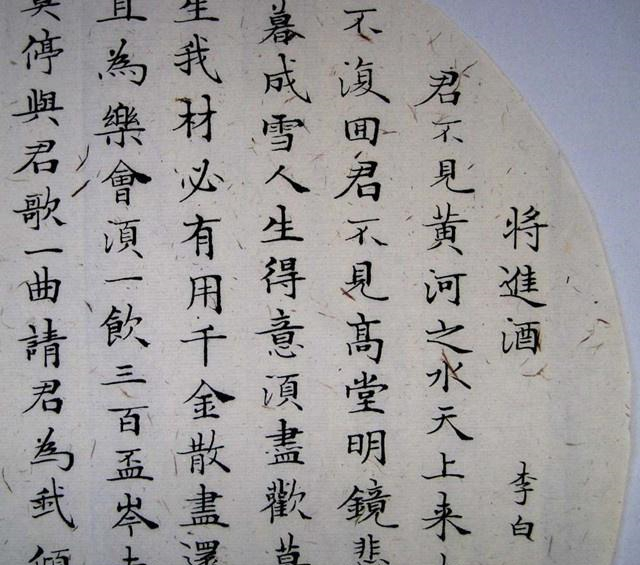 將進酒 李白
君不見黃河之水天上来
不復囬君不見髙堂明鏡悲
暮成雪人生得意湏盡歡莫
生我材必有用千金散盡還
且為樂會湏一飲三百盃岑
莫停與君歌一曲請君為我傾